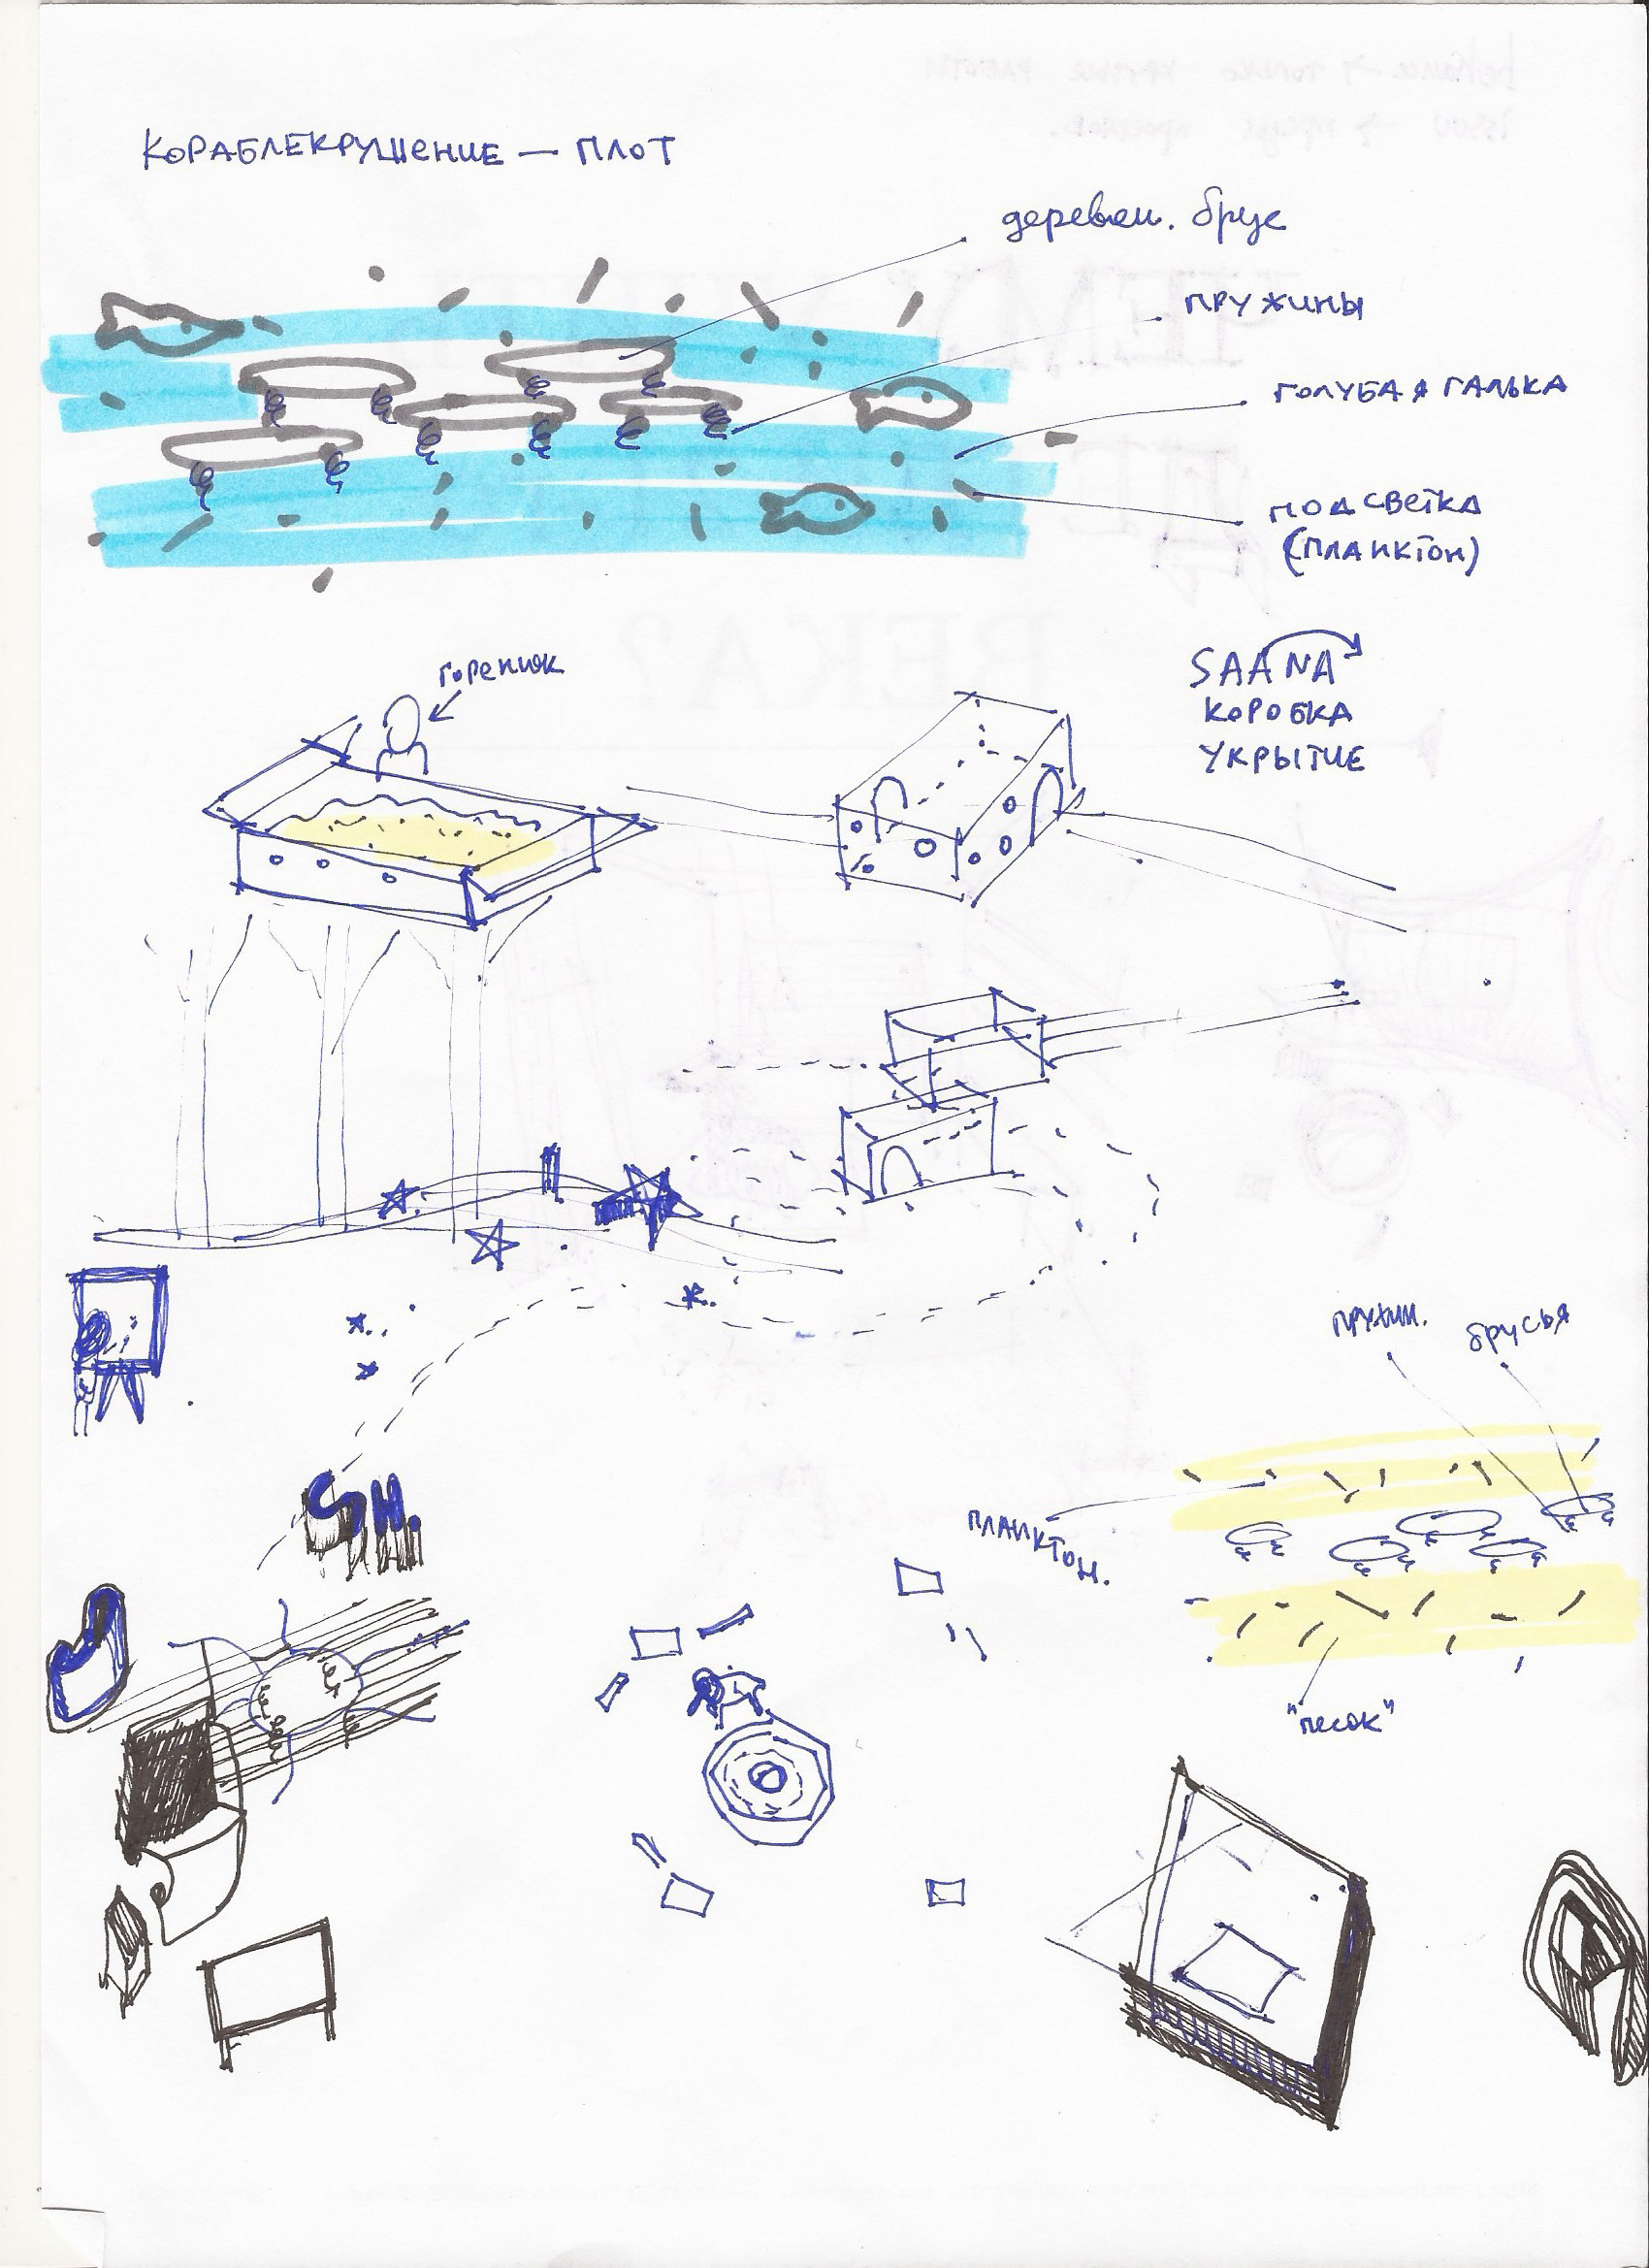 КОРАБЛЕКРУШЕНИЕ — ПЛОТ
деревен. брус
ПРУЖИНЫ
ГОЛУБАЯ ГАЛЬКА
ПОДСВЕТКА
(ПЛАНКТОН)
SAANA
КОРОБКА
УКРЫТИЕ
ПРУЖИН.
брусья
ПЛАНКТОН.
"песок"